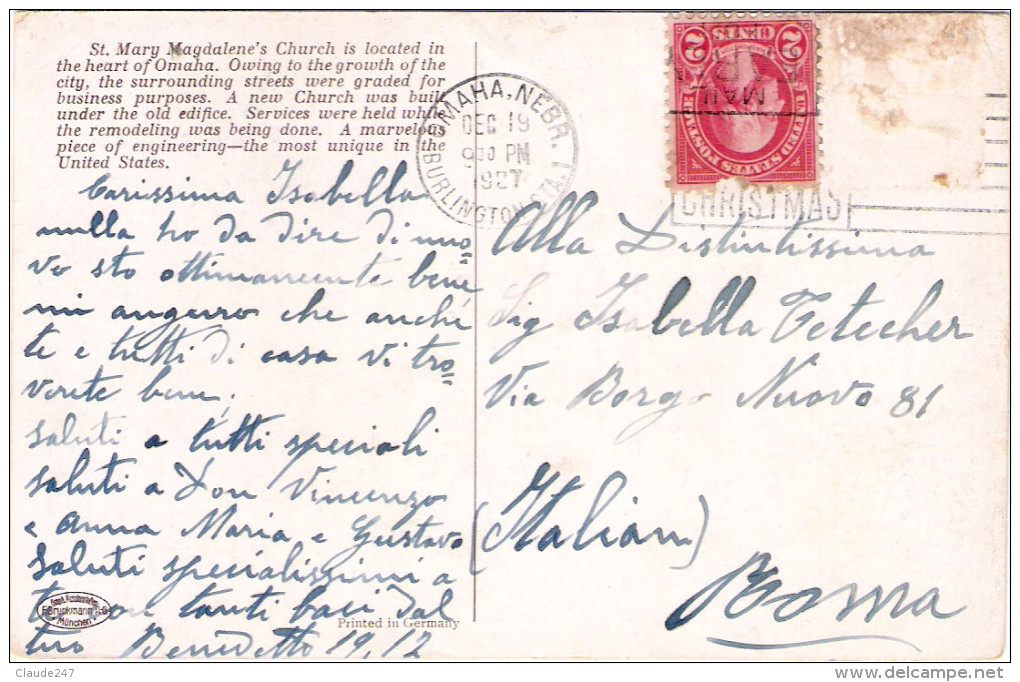 St. Mary Magdalene's Church is located in
the heart of Omaha. Owing to the growth of the
city, the surrounding streets were graded for
business purposes. A new Church was built
under the old edifice. Services were held while
the remodeling was being done. A marvelous
piece of engineering—the most unique in the
United States.
Carissima Isabella
nulla ho da dire di nuo=
vo sto ottimamente bene
mi auguro che anche
te e tutti di casa vi tro=
verete bene,
Saluti a tutti speciali
Saluti a Don Vincenzo
e Anna Maria e Gustavo
Saluti specialissimi a
te con tanti baci dal
tuo Benedetto 19,12
OMAHA, NEBR.
DEC 19
9 00 PM
1927
BURLINGTON STA. 1
2 CENTS 2
UNITED STATES POSTAGE
MAIL
CHRISTMAS
Alla Distintissima
Sig Isabella Tetecher
Via Borgo Nuovo 81
(Italian)
Roma
F. Bruckmann A.G.
München
Printed in Germany
Claude247
delcampe.net